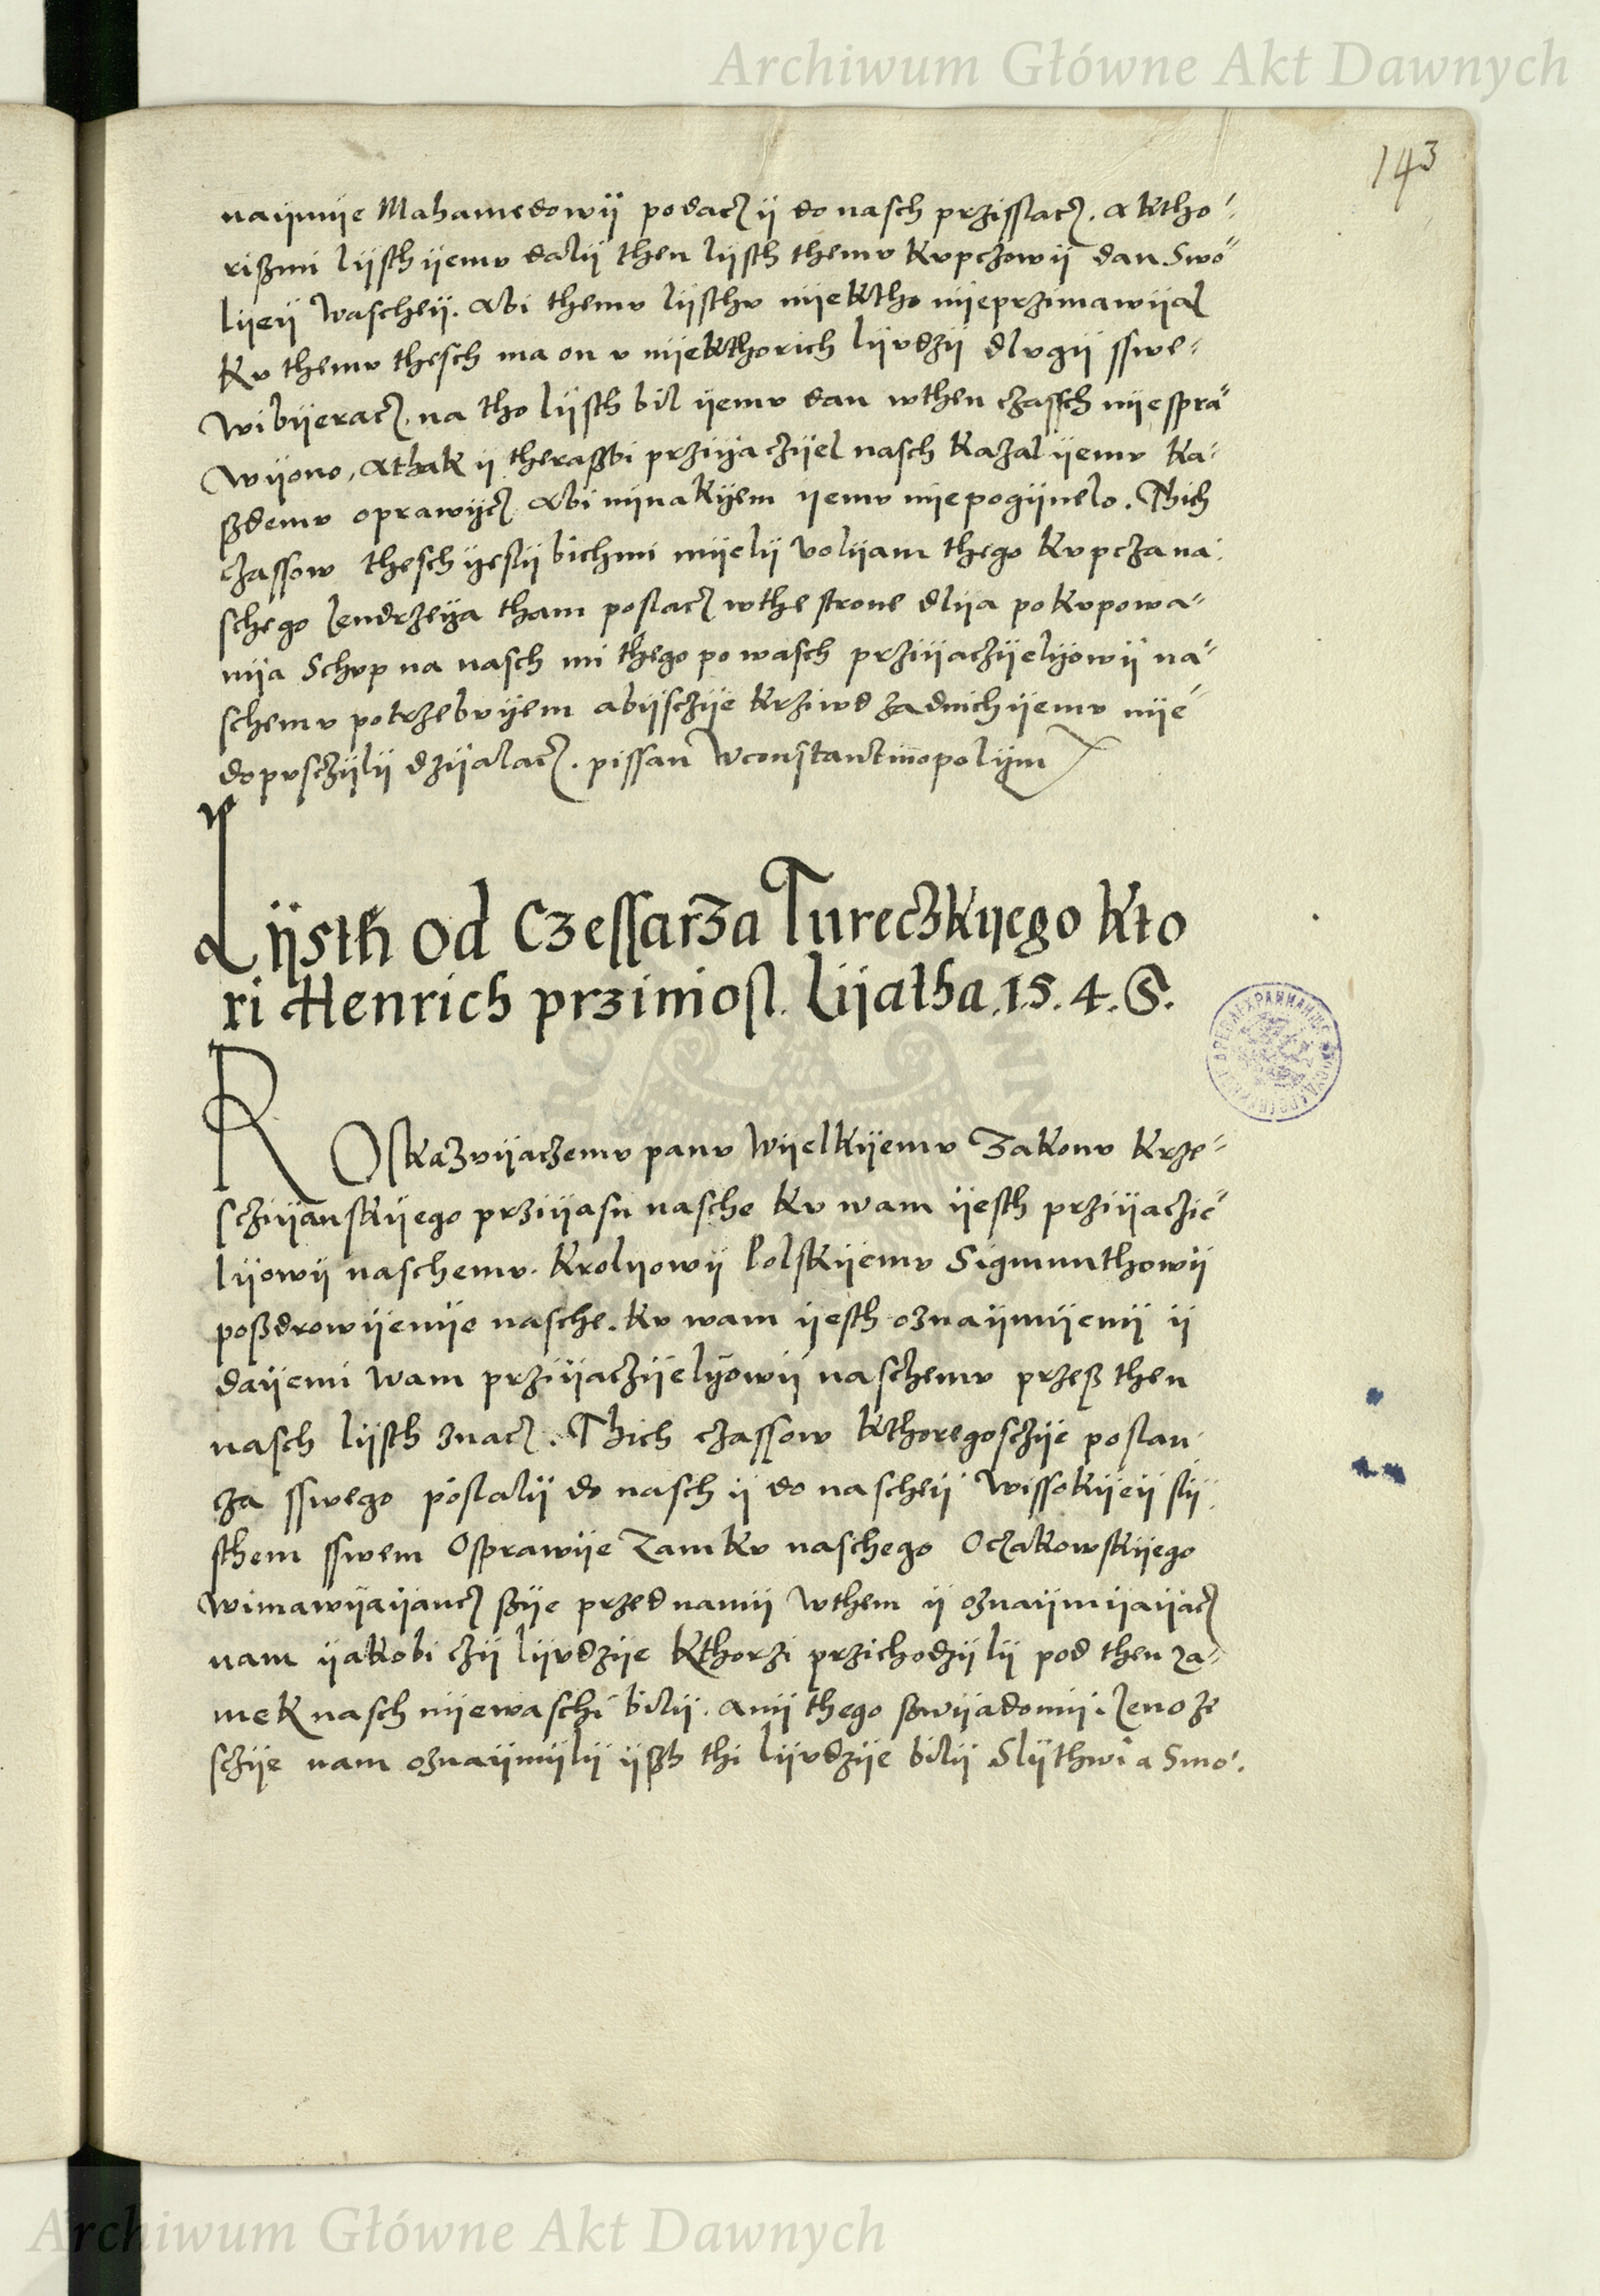 Archiwum Główne Akt Dawnych
143
naÿmÿe Mahamedowÿ podacz ÿ do nasch przisslacz. A ktho-
rißmi lÿsth ÿemv dalÿ then lÿsth themv kvpczowÿ dan Swo-
lÿeÿ wascheÿ. Abi themv lÿsthv nÿektho nÿeprzimawÿal
Kv themv thesch ma on v nÿekthorich lÿvdzÿ dlvgÿ sswe-
wibÿeracz. na tho lÿsth bil ÿemv dan wthen czassch nÿespra-
wÿono, Athak ÿ theraßbi przÿaczÿel nasch kazal ÿemv ka-
ßdemv oprawÿcz Abi nÿnakÿem ÿemv nÿepogÿnelo. Thich
czassow thesch ÿeslÿ bichmi mÿelÿ volÿam thego kvpcza na-
schego Jendrzeÿa tham poslacz wthe strone dlÿa pokvpowa-
nÿa Schvp na nasch mi thego po wasch przÿaczÿelÿowÿ na-
schemv potrzebvÿem abÿsczÿe krziwd zadnich ÿemv nÿe-
dopvsczÿlÿ dzÿalacz. pissan Wconstantinopolÿm
Lÿsth Od Czessarza Tureczkÿego kto
ri Henrich prziniosl. Lÿatha. 1.5.4.S.
ROskazvÿaczemv panv Wÿelkÿemv Zakonv Krze-
sczÿanskÿego przÿasn nasche kv wam ÿesth przÿaczie-
lÿowÿ naschemv. Krolÿowÿ Polskÿemv Sigmunthowÿ
poßdrowÿenÿe nasche. kv wam ÿesth oznaÿmÿenÿ ÿ
daÿemi wam przÿaczÿelÿowÿ naschemv przeß then
nasch lÿsth znacz. Thich czassow kthoregosczÿe poslan-
cza sswego poslalÿ do nasch ÿ do nascheÿ wissokÿeÿ slÿ-
sthem sswem Osprawÿe Zamkv naschego Oczakowskÿego
wimawÿaÿancz ßÿe przed namÿ wthem ÿ oznaÿmÿaÿacz
nam ÿakobi czÿ lÿvdzÿe kthorzi przichodzÿlÿ pod then za-
mek nasch nÿewaschi bilÿ. anÿ thego ßwÿadomÿ. Jeno ze
sczÿe nam oznaÿmÿlÿ ÿßh thi lÿvdzÿe bilÿ Slÿthwi a Smo-
Archiwum Główne Akt Dawnych